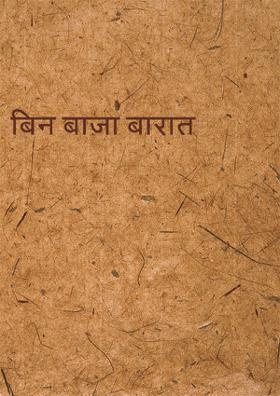 बिन बाजा बारात